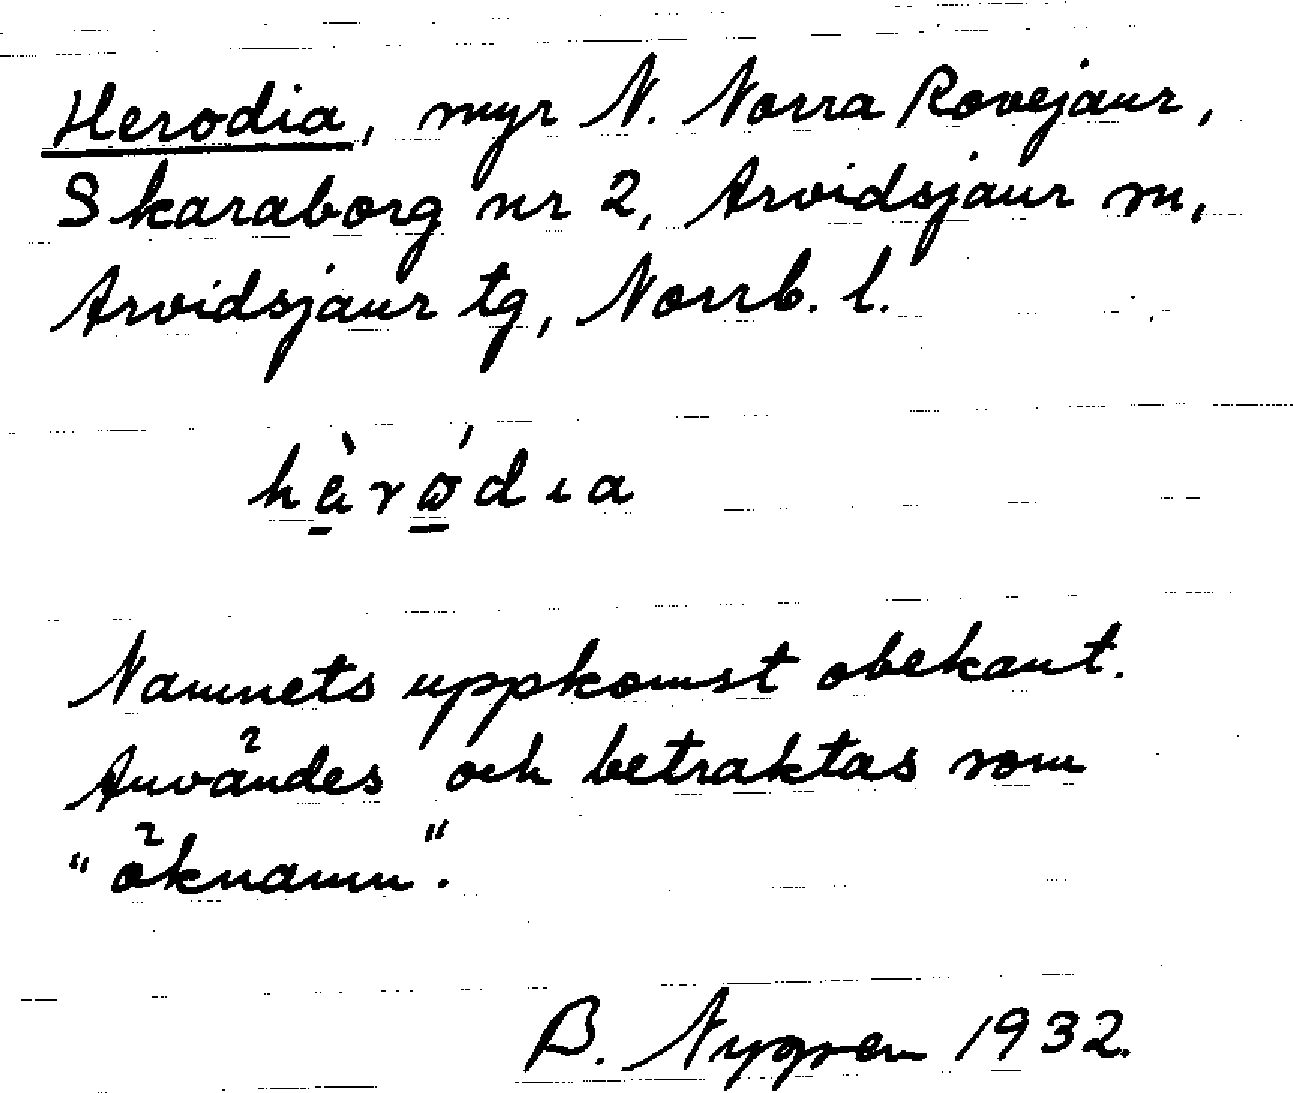 Herodia, myr N. Norra Rovejaur,
Skaraborg nr 2, Arvidsjaur sn,
Arvidsjaur tg, Norrb. l.
hèrọ́dıa
Namnets uppkomst obekant.
Användes och betraktas som
"öknamn".
B. Nygren 1932.